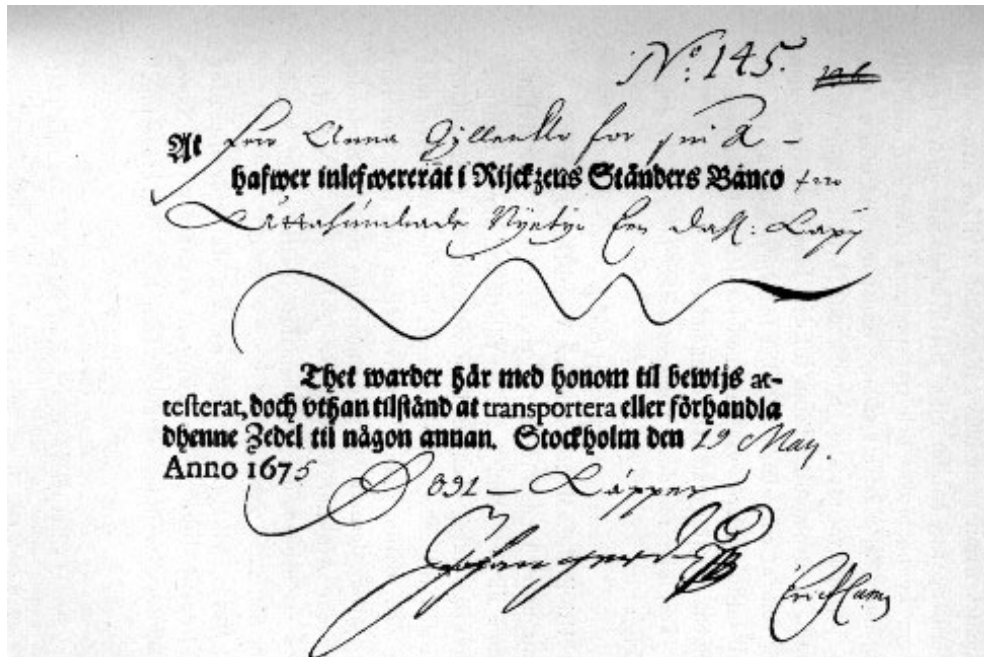 No: 145.
At Fru Anna Gyllenklo for sin R -
hafwer inlefwererat i Rijckzens Ständers Banco
Ottahundrade Nijetije Een dahl:
Thet warder här med honom til bewijs at-
testerat, doch vthan tilstånd at transportera eller förhandla
dhenne Zedel til någon annan. Stockholm den 19 May.
Anno 1675
D 891 - Kåpper
Johan
Erich